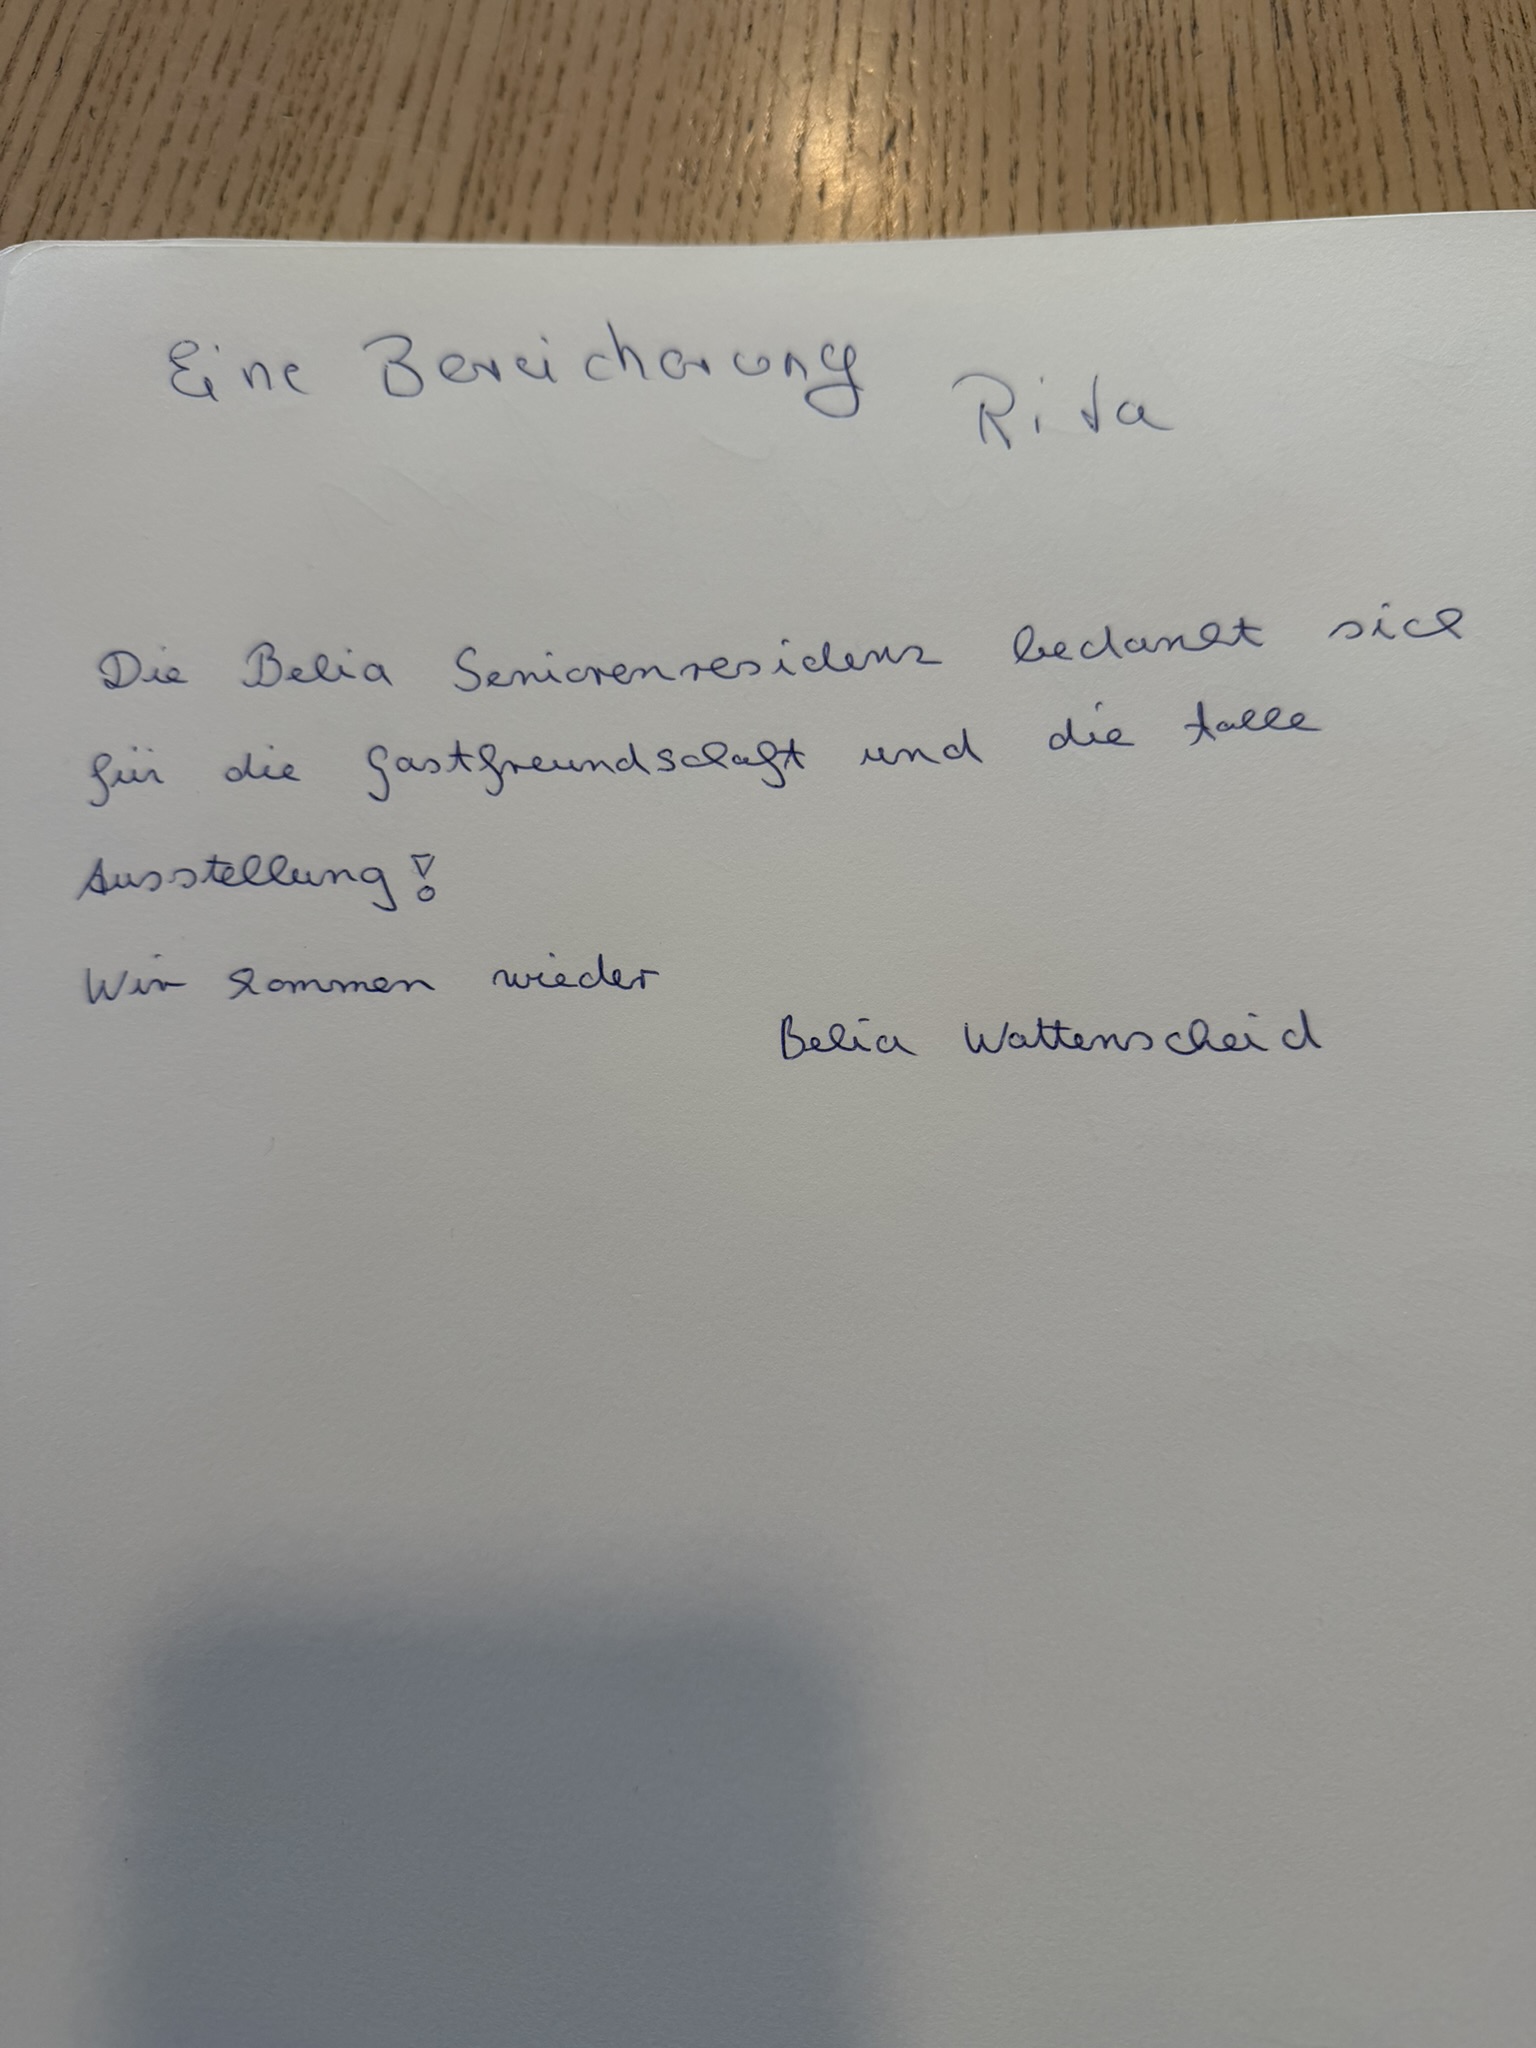 Eine Bereicherung
Rita
Die Belia Seniorenresidenz bedankt sich
für die Gastfreundschaft und die tolle
Ausstellung!
Wir kommen wieder
Belia Wattenscheid